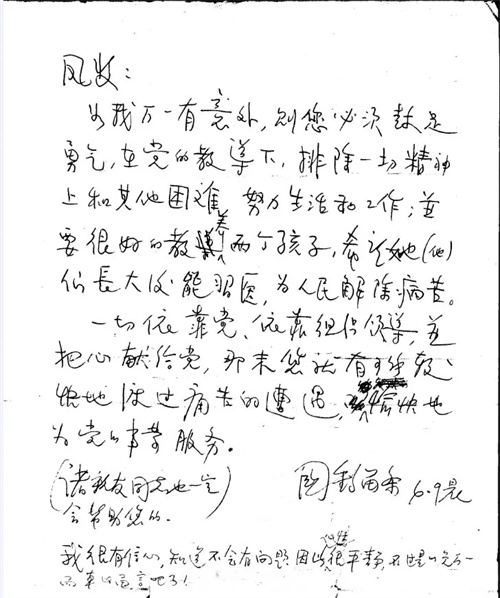 凤
我万一有意外,则您必须鼓足
勇气,在党的教导下,排除一切精神
上和其他困难,努力生活和工作;並
要很好的教养两个孩子,希望她(他)
们長大后能習医,为人民解除病苦。
一切依靠党、依靠组织领导,並
把心献给党,那末您就有可能较
快地度过痛苦的遭遇,愉快地
为党的事業服务。
(诸親友同志也一定
会帮助您的.)
6.9晨
我很有信心,知道不会有问题因此很平静,不过是万一
而来的遗言吧了!